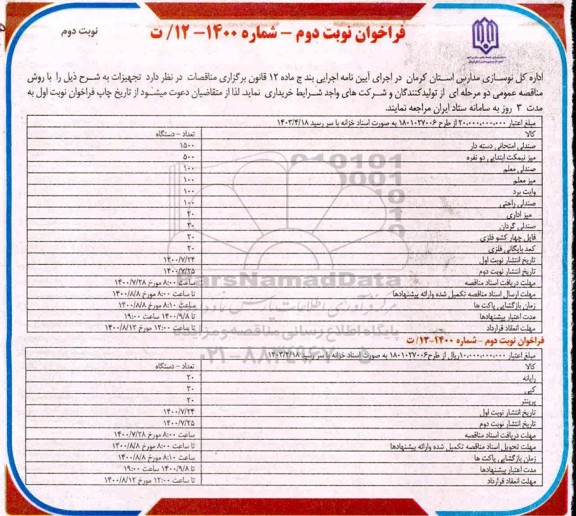 فراخوان نوبت دوم - شماره ۱۴۰۰- ۱۲/ ت
نوبت دوم
اداره کل نوسازی مدارس استان کرمان در اجرای آیین نامه اجرایی بند ج ماده ۱۲ قانون برگزاری مناقصات در نظر دارد تجهیزات به شرح ذیل را با روش
مناقصه عمومی دو مرحله ای از تولیدکنندگان و شرکت های واجد شرایط خریداری نماید. لذا از متقاضیان دعوت میشود از تاریخ چاپ فراخوان نوبت اول به
مدت ۳ روز به سامانه ستاد ایران مراجعه نمایند.
مبلغ اعتبار ۲۰.۰۰۰.۰۰۰.۰۰۰ از طرح ۱۸۰۱۰۲۷۰۰۶ به صورت اسناد خزانه با سر رسید ۱۴۰۳/۴/۱۸
کالا تعداد - دستگاه
صندلی امتحانی دسته دار ۱۵۰۰
میز نیمکت ابتدایی دو نفره ۵۰۰
صندلی معلم ۱۰۰
میز معلم ۱۰۰
وایت برد ۱۰۰
صندلی راحتی ۱۰۰
میز اداری ۴۰
صندلی گردان ۴۰
فایل چهار کشو فلزی ۲۰
کمد بایگانی فلزی ۲۰
تاریخ انتشار نوبت اول ۱۴۰۰/۷/۲۴
تاریخ انتشار نوبت دوم ۱۴۰۰/۷/۲۵
مهلت دریافت اسناد مناقصه ساعت ۸:۰۰ مورخ ۱۴۰۰/۷/۲۸
مهلت ارسال اسناد مناقصه تکمیل شده وارائه پیشنهادها تا ساعت ۸:۰۰ مورخ ۱۴۰۰/۸/۸
زمان بازگشایی پاکت ها ساعت ۸:۱۰ مورخ ۱۴۰۰/۸/۸
مدت اعتبار پیشنهادها تا ۱۴۰۰/۹/۸ ساعت ۱۹:۰۰
مهلت انعقاد قرارداد تا ساعت ۱۲:۰۰ مورخ ۱۴۰۰/۸/۱۲
ParsNamadData
پایگاه اطلاع رسانی مناقصه و مزایده
فراخوان نوبت دوم - شماره ۱۴۰۰-۱۳/ ت
مبلغ اعتبار ۱۰.۰۰۰.۰۰۰.۰۰۰ریال از طرح ۱۸۰۱۰۲۷۰۰۶ به صورت اسناد خزانه با سر رسید ۱۴۰۳/۲/۱۸
کالا تعداد - دستگاه
رایانه ۲۰
کپی ۲۰
پرینتر ۲۰
تاریخ انتشار نوبت اول ۱۴۰۰/۷/۲۴
تاریخ انتشار نوبت دوم ۱۴۰۰/۷/۲۵
مهلت دریافت اسناد مناقصه ساعت ۸:۰۰ مورخ ۱۴۰۰/۷/۲۸
مهلت تحویل اسناد مناقصه تکمیل شده وارائه پیشنهادها تا ساعت ۸:۰۰ مورخ ۱۴۰۰/۸/۸
زمان بازگشایی پاکت ها ساعت ۸:۱۰ مورخ ۱۴۰۰/۸/۸
مدت اعتبار پیشنهادها تا ۱۴۰۰/۹/۸ ساعت ۱۹:۰۰
مهلت انعقاد قرارداد تا ساعت ۱۲:۰۰ مورخ ۱۴۰۰/۸/۱۲